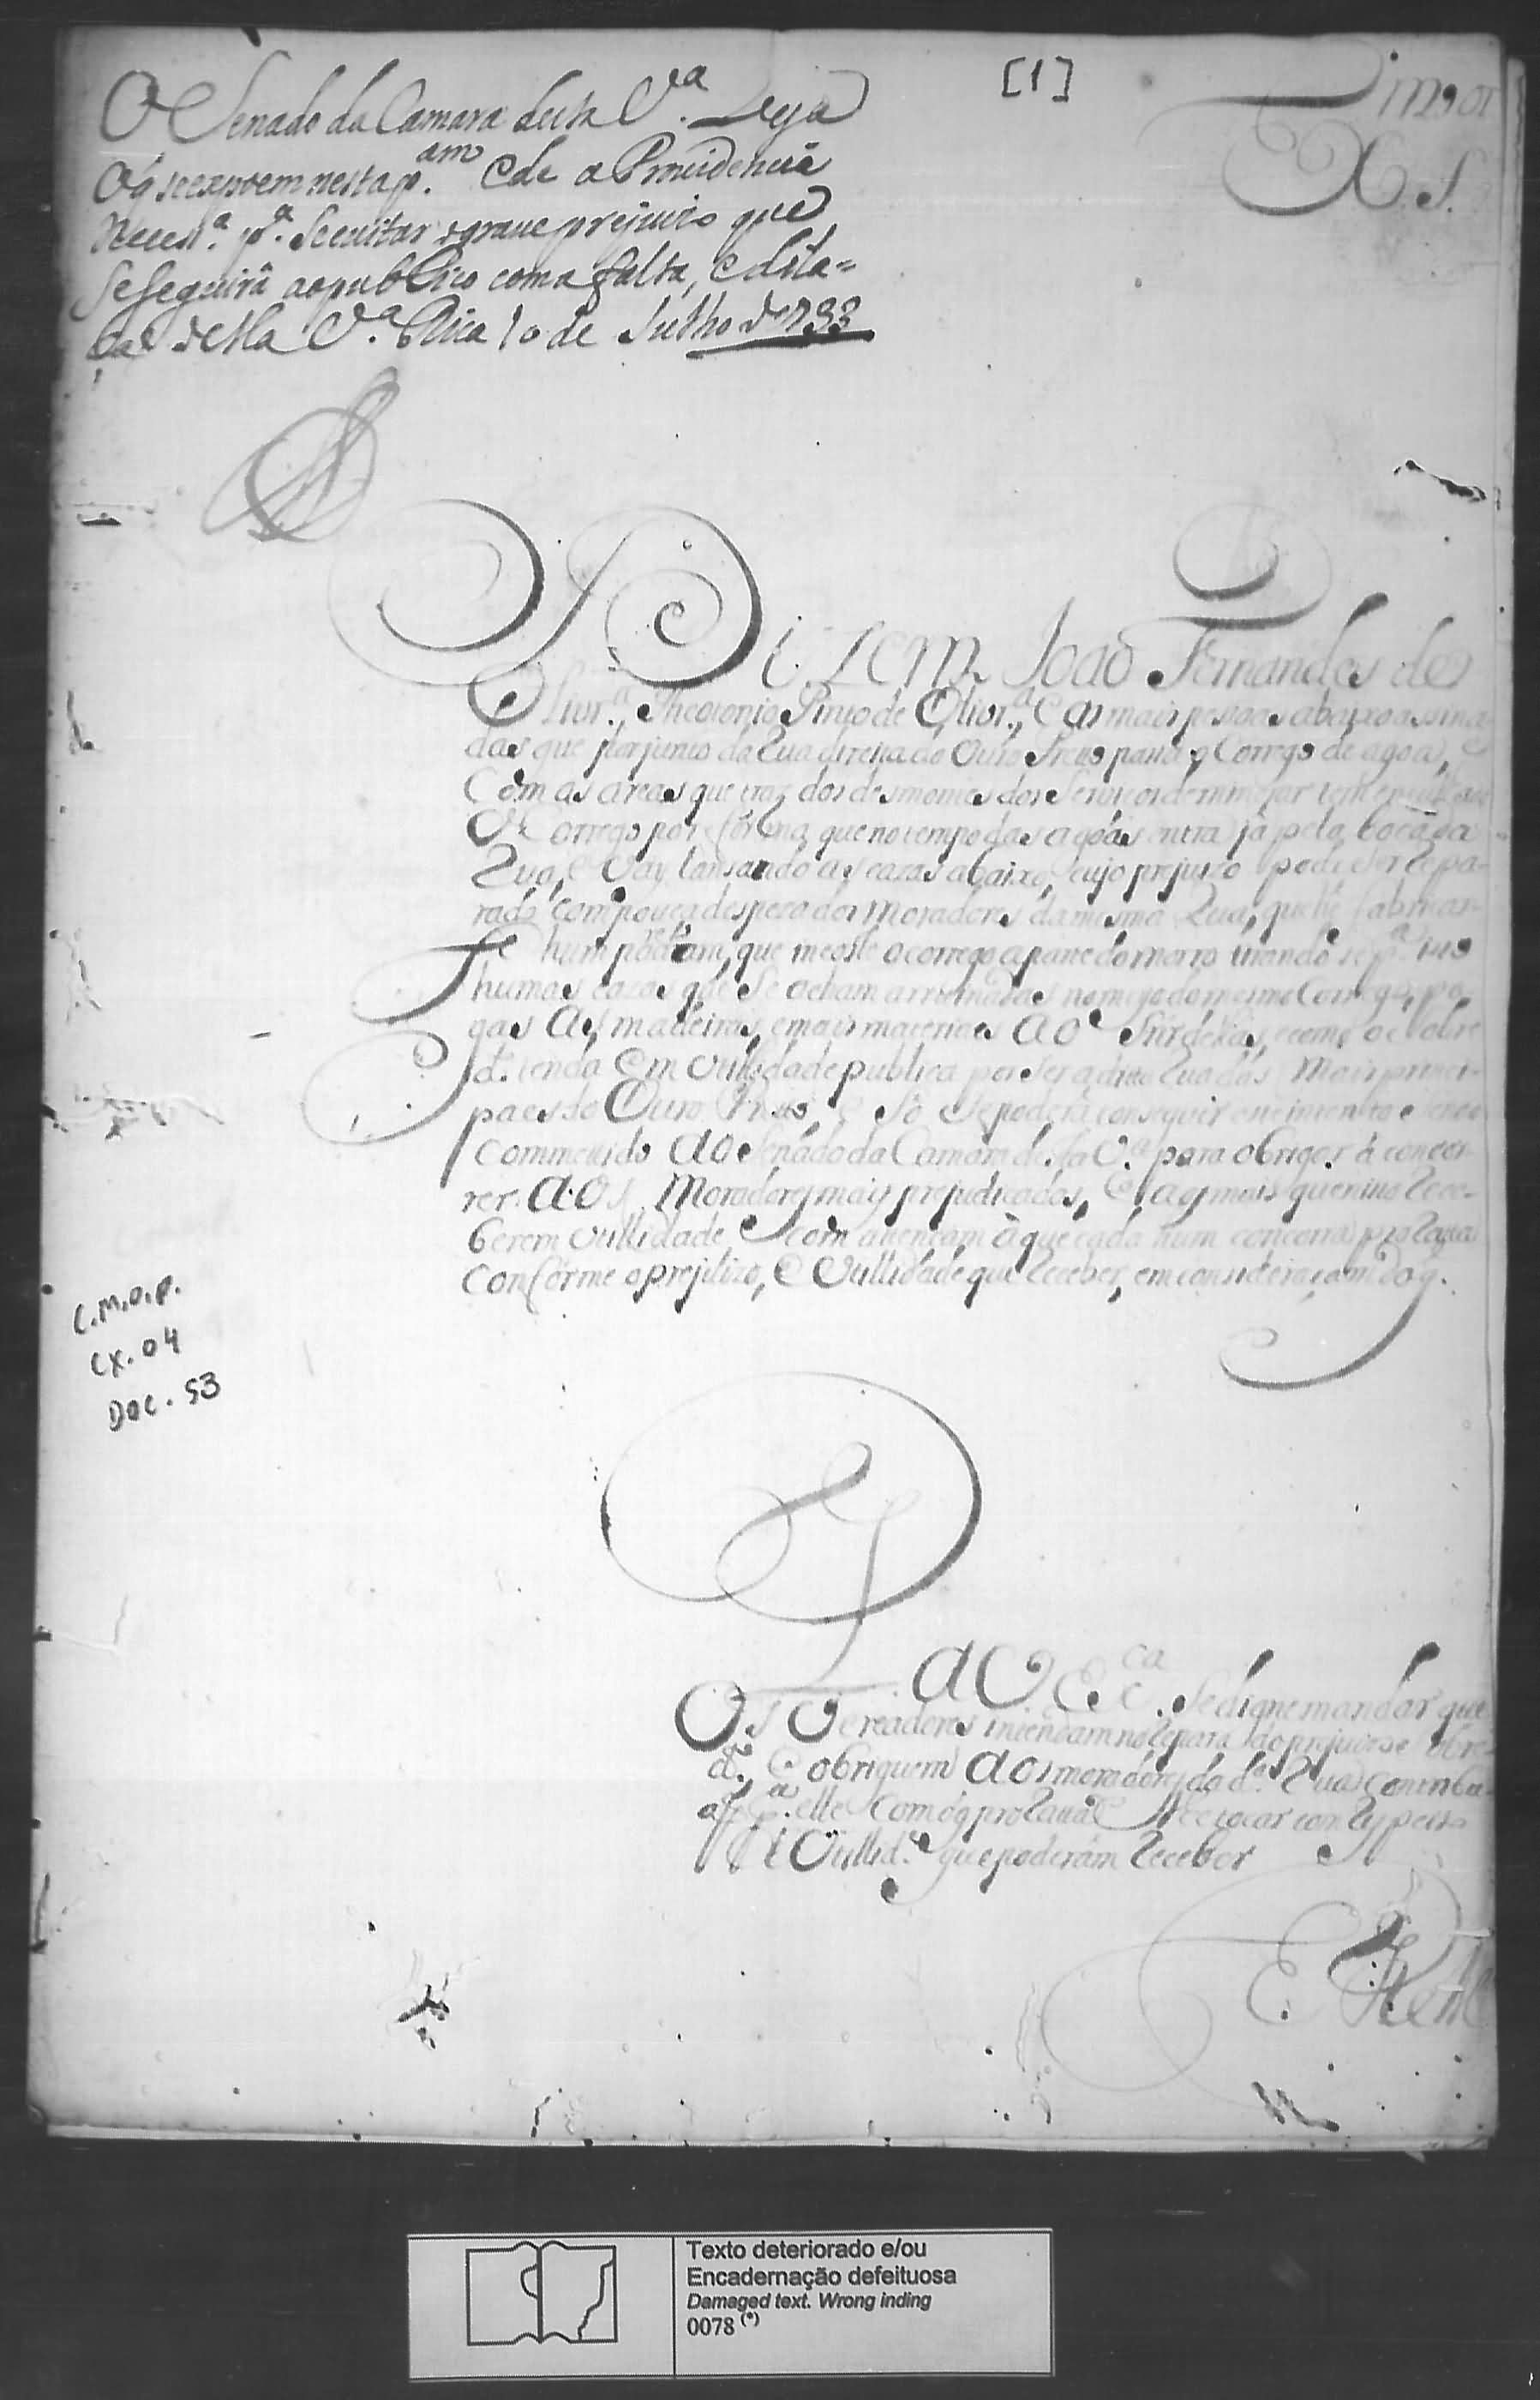 O Senado da Camara desta V.ª Veja
O q̃ se expoem nesta p.am e de a Providencia
Necess.ª p.ª Se evitar o grave prejuizo que
Se Seguirâ ao publico com a falta, e dila=
ção della V.ª Rica 10 de Julho de 733
[1]
Ex. S.
Dizem Joaõ Fernandes de
Olivr.ª, Theotonio Pinto de Olivr.ª, e as mais pessoas abaixo assina
das que por junto da Rua direita do Ouro Preto passa o Corrego de agoa,
Com as areas que traz dos desmontes dos Serviços de minerar tem
O Corrego por forma, que no tempo das agoas entra jâ pela boca da
Rua, e vay lansando as cazas abaixo, cujo prejuizo pode ser repa-
rado com pouca despeza dos Moradores da mesma Rua, que he fabricar-
Se hum paredam, que meoste o corrego a parte do morro tirando se p.ª isso
humas cazas que Se acham arruinadas no meyo do mesmo Corrego, pa-
gas As madeiras, e mais materiaes Ao Sûrdelas, e como o Sobre
d.º renda em utillidade publica por Ser a ditta Rua das Mais princi-
paes do Ouro Preto, e Sô Se poderâ conseguir
commetido Ao Senado da Camara desta V.ª para obrigar â concor-
rer Aos Moradores mais prejudicados, e as mais que nisso Rece-
berem utillidade com attençam â que cada hum concorra pro Rata
Conforme o prejuizo, e Utillidade que Receber, em consideraçam Do q.
C.M.O.P.
Cx. 04
Doc. 53
P. a V. Ex.ca Se digne mandar que
Os Vereadores intendam no Reparo do prejuizo Sobre
d.º, e obriguem Aos moradores da d.ª Rua Contribu-
a p.ª elle Com o q pro Rata lhe tocar com Respeito
â Utillid.e que poderâm Receber
E. R. M.
Texto deteriorado e/ou
Encadernação defeituosa
Damaged text. Wrong inding
0078 (*)